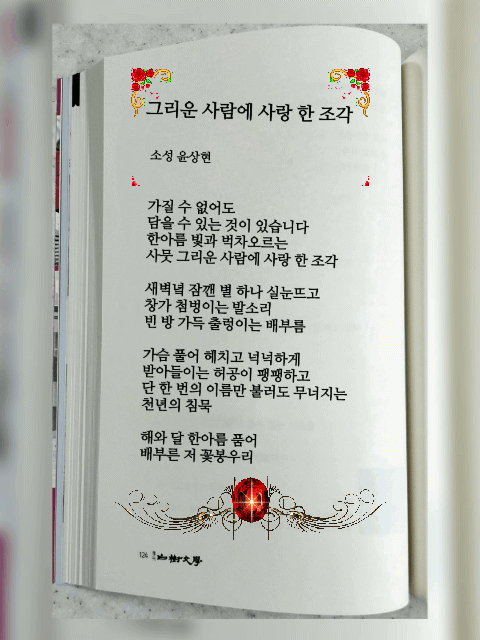 그리운 사람에 사랑 한 조각
소성 윤상현
가질 수 없어도
담을 수 있는 것이 있습니다
한아름 빛과 벅차오르는
사뭇 그리운 사람에 사랑 한 조각
새벽녘 잠깬 별 하나 실눈뜨고
창가 첨벙이는 발소리
빈 방 가득 출렁이는 배부름
가슴 풀어 헤치고 넉넉하게
받아들이는 허공이 팽팽하고
단 한 번의 이름만 불러도 무너지는
천년의 침묵
해와 달 한아름 품어
배부른 저 꽃봉우리
124